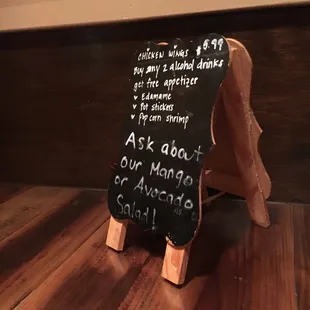 CHICKEN WINGS $5.99
Buy any 2 alcohol drinks
get free appetizer
♥ Edamame
♥ Pot stickers
♥ Popcorn shrimp
Ask about
our Mango
or Avocado
Salad!